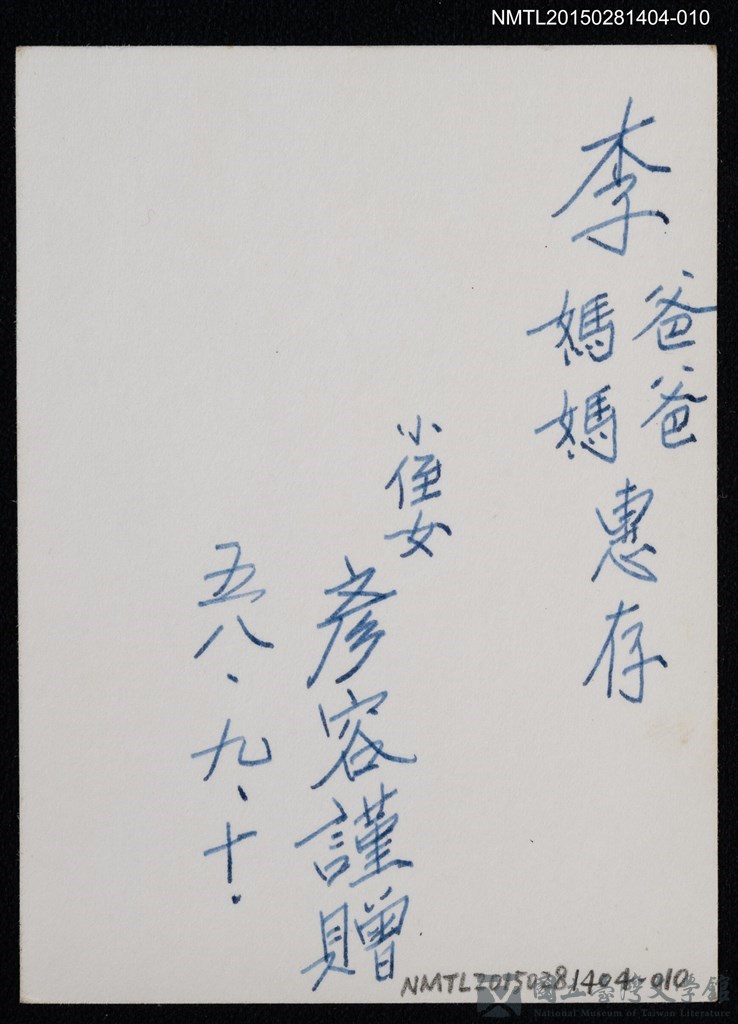 NMTL20150281404-010
李爸爸
媽媽惠存
小侄女
彥容謹贈
五八、九、十.
NMTL20150281404-010
國立臺灣文學館
National Museum of Taiwan Literature